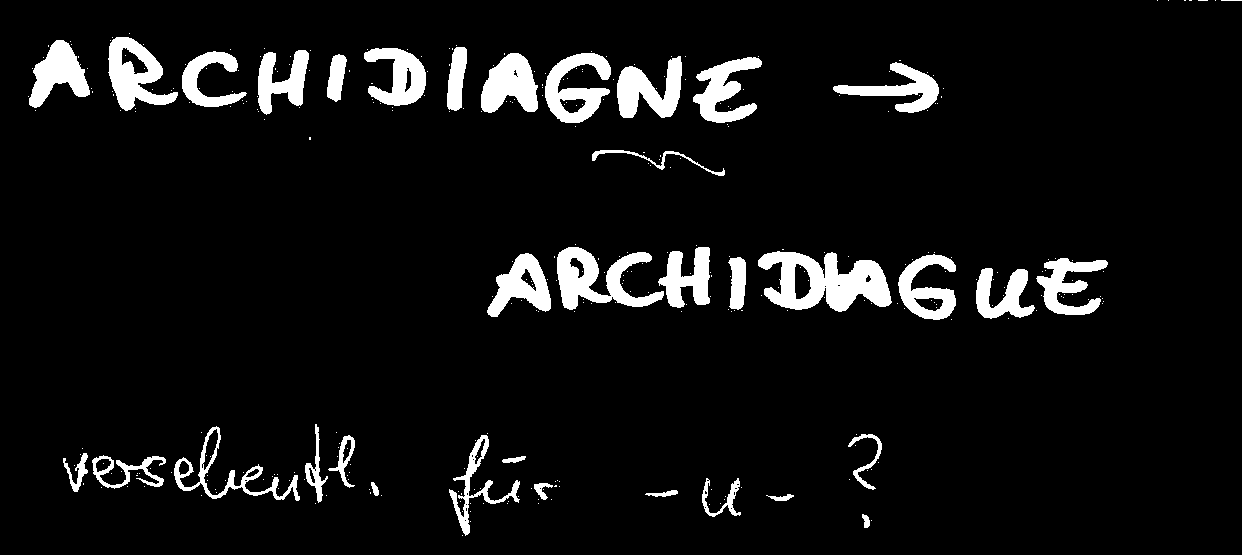 ARCHIDIAGNE →
ARCHIDIAGUE
versehentl. für -u- ?